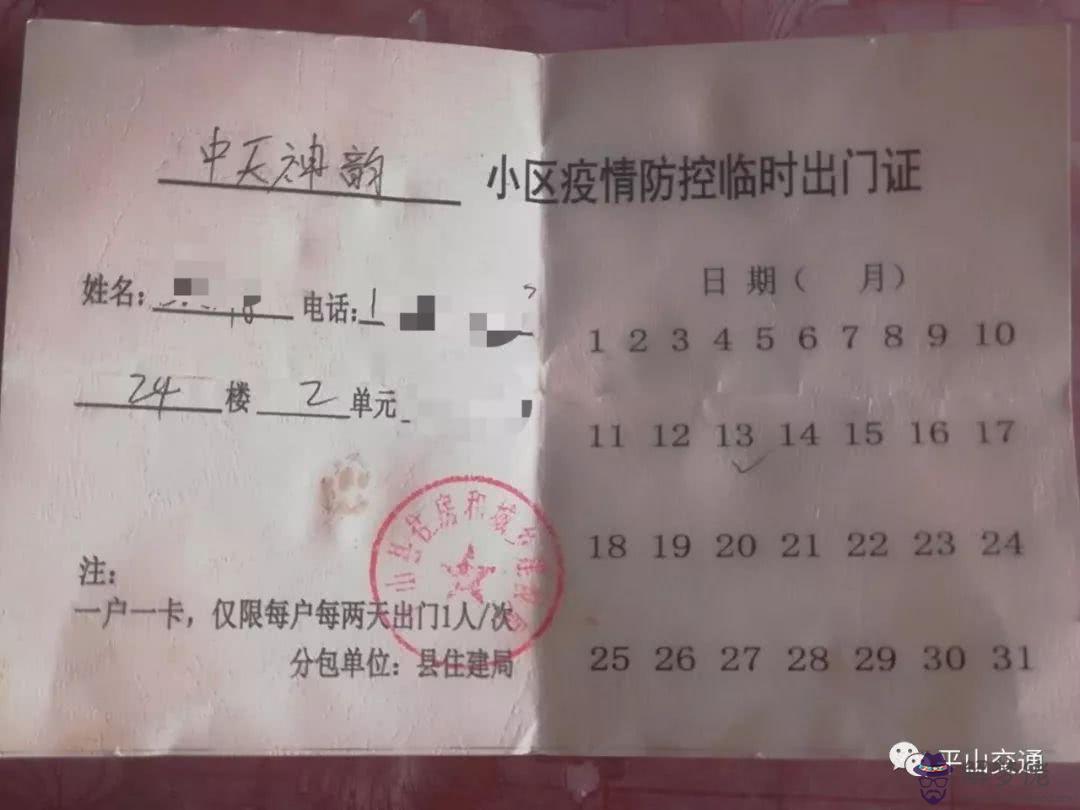 中天神韵 小区疫情防控临时出门证
姓名: 电话:1
24 楼 2 单元
注:
一户一卡，仅限每户每两天出门1人/次
分包单位：县住建局
山县住房和城乡建设局
日期（ 月）
1 2 3 4 5 6 7 8 9 10
11 12 13 14 15 16 17
18 19 20 21 22 23 24
25 26 27 28 29 30 31
平山交通